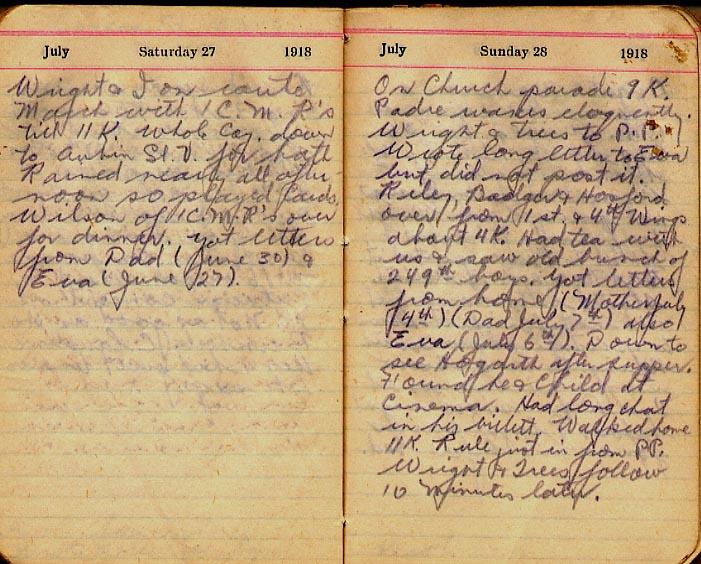 July Saturday 27 1918
Wright & I on route
March with 1 C.M.R's
till 11 K. Whole Coy. down
to Aubin St. V. for bath
Rained nearly all after-
noon so played Cards.
Wilson of 1 C.M.R's over
for dinner. Got letters
from Dad (June 30) &
Eva (June 27).
July Sunday 28 1918
On Church parade 9 K.
Padre waxes eloquently.
Wright & Trees to P.P.
Wrote long letter to Eva
but did not post it.
Riley, Badger & Hosford
over from 1st. & 4th Wings
about 4 K. Had tea with
us & saw old bunch of
249th boys. Got letters
from home (Mother July
4th) (Dad July 7th) also
Eva (July 6th). Down to
see Hogarth after supper.
Found he & Child at
Cinema. Had long chat
in his billett. Walked home
11 K. Rule just in from P.P.
Wright & Trees follow
10 Minutes later.